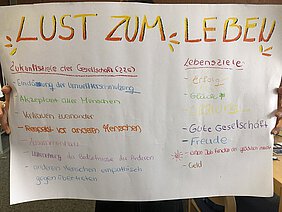 LUST ZUM LEBEN
Zukunftsziele der Gesellschaft (ZZG)
- Eindämmung der Umweltverschmutzung
- Akzeptanz aller Menschen
- Vertrauen zueinander
- Respekt vor anderen Menschen
- Zusammenhalt
- der Bedürfnisse der Anderen
- anderen Menschen empathisch
gegenübertreten
Lebensziele:
- Erfolg
- Glück
- Gute Gesellschaft
- Freude
- guten Job finden
- Geld